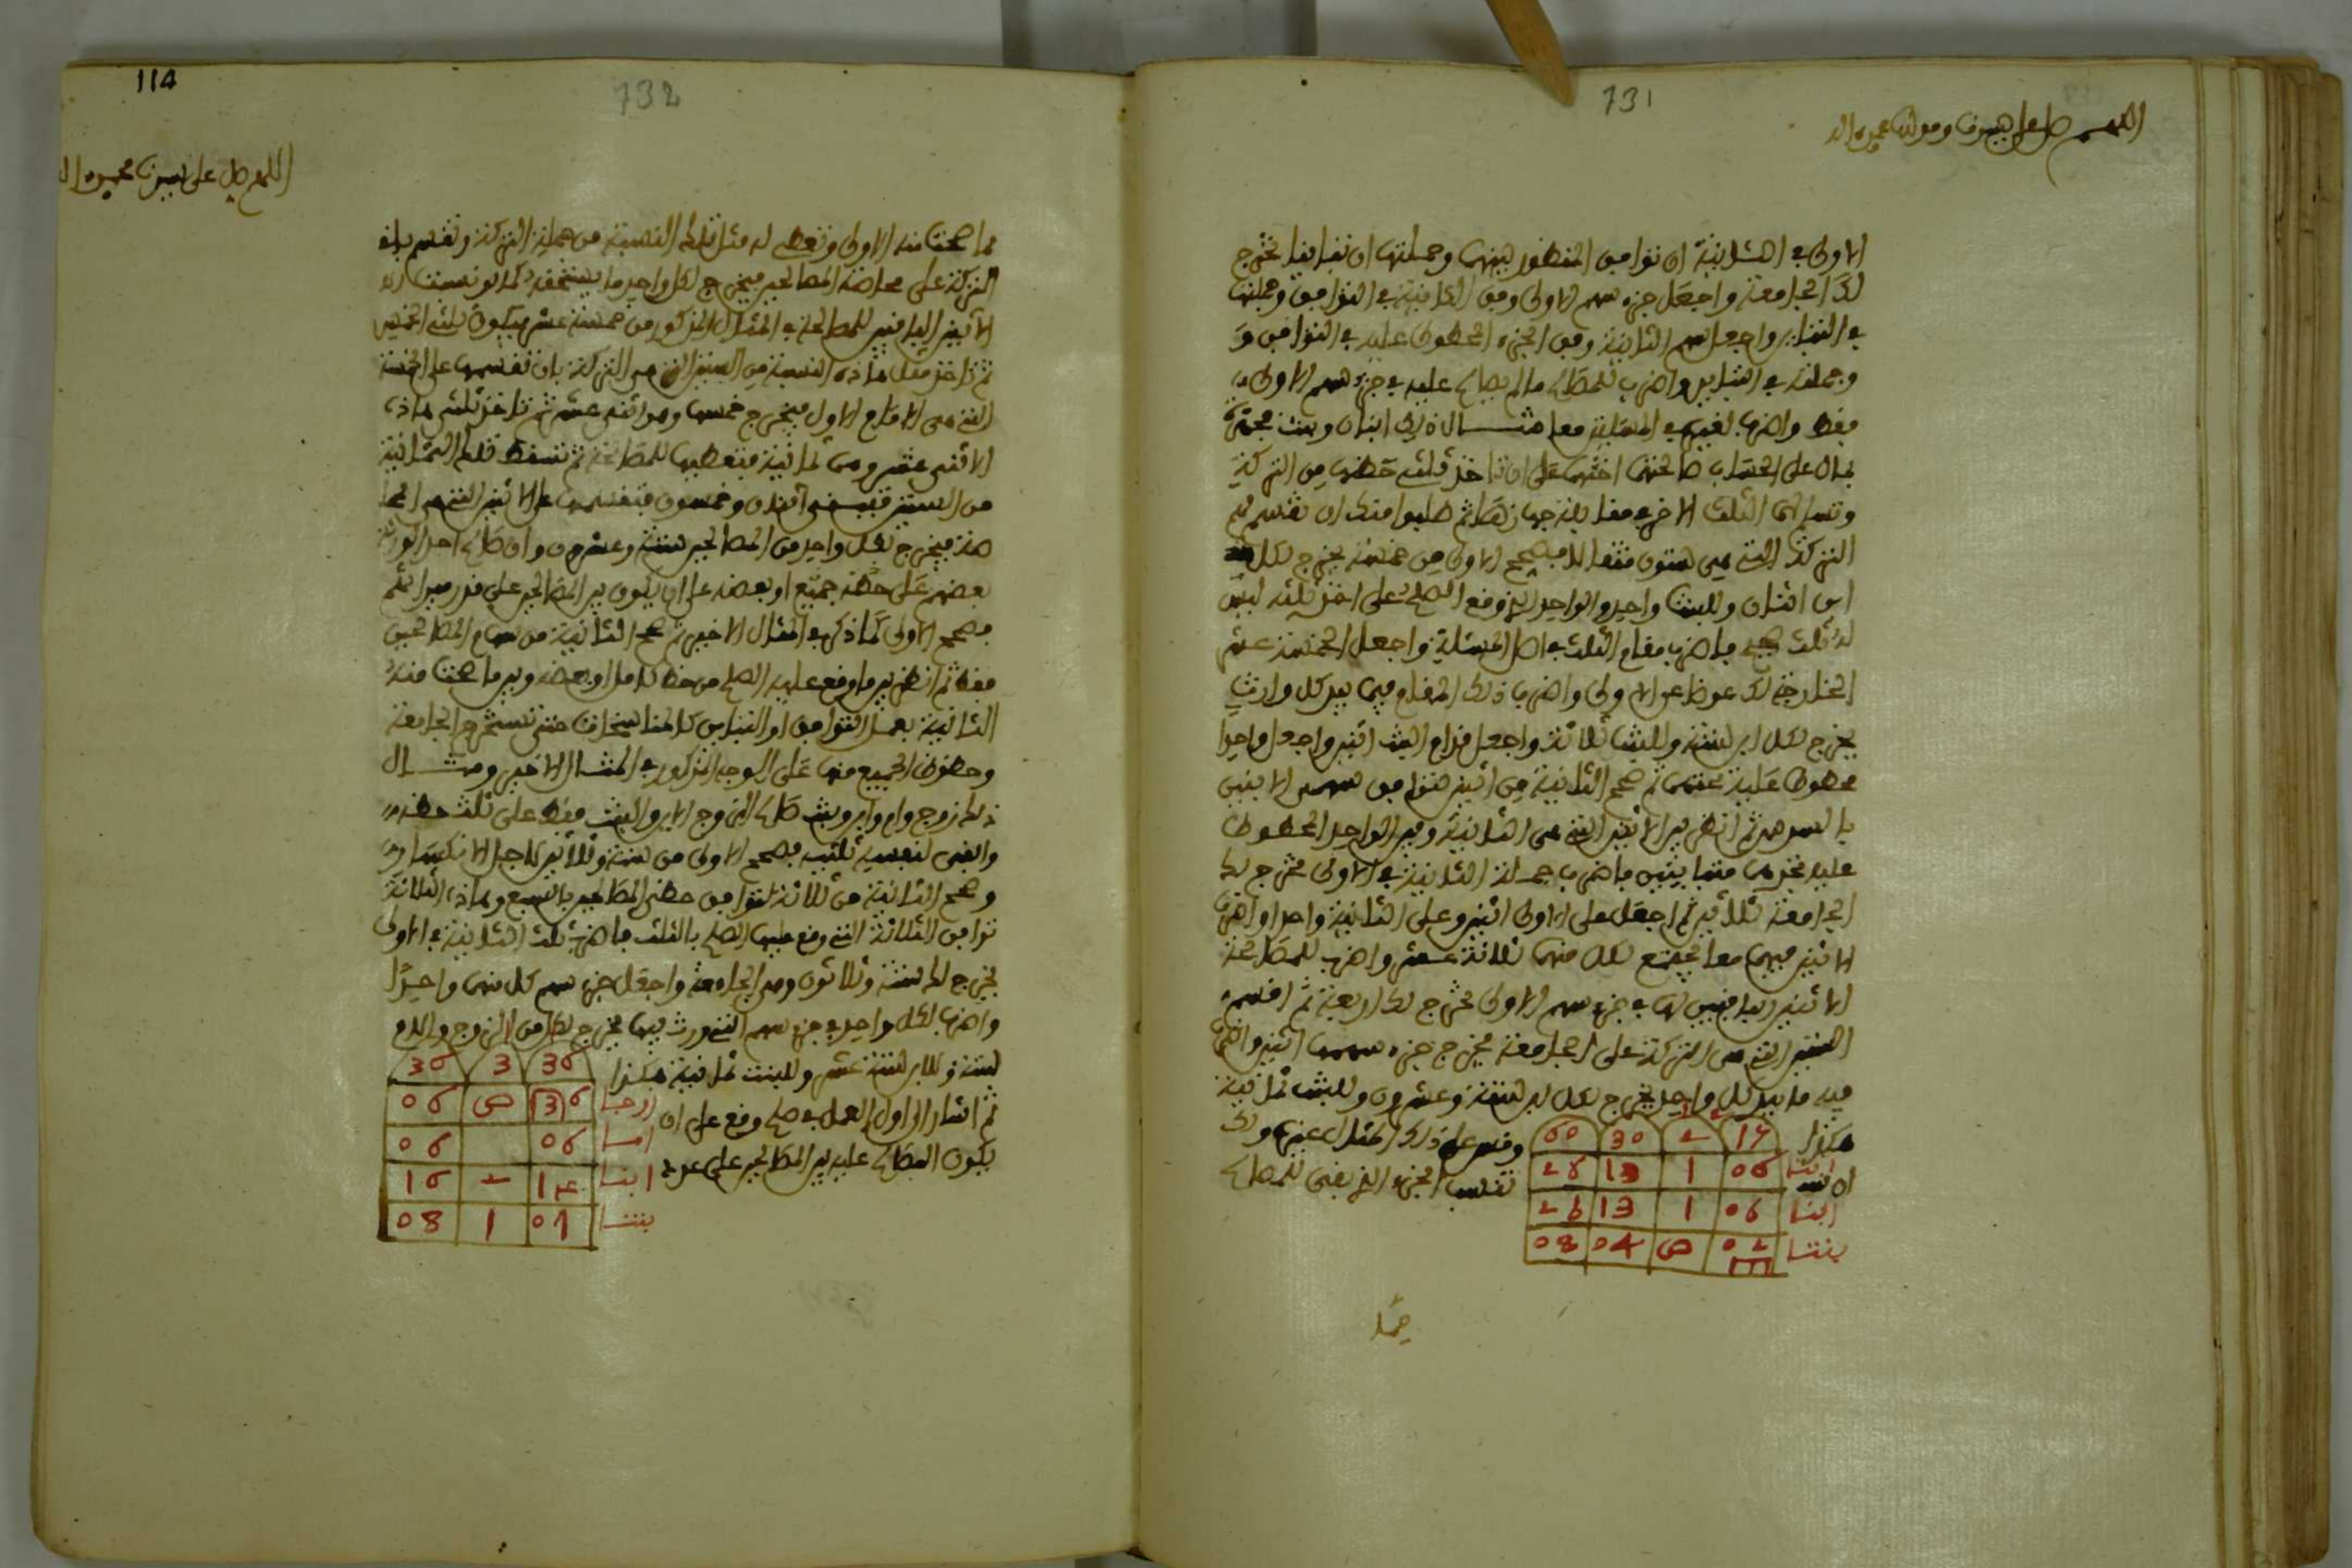 731
اللهم صل على سيدنا ومولانا محمد واله
الاولى في الثانية ان توافق المنظور بينهما وجملتها ان تباينا تخرج
لك الجامعة واجعل جزء سهم الاولى وفق الثانية في التوافق وجملتها
في التباين واجعل سهم الثانية وفق الجزء المحطوط عليه في التوافق و
وجملته في التباين واضرب للمصالح ما لم يصالح عليه في جزء سهم الاولى
فقط واضرب لغيره في المسئلة معا مثال ذلك ابنان وبنت
على الحساب صالحتهما اختهما على ان تاخذ ثلثي حظها من التركة
وتسلم لهما الثلث الاخر في مقابلة ثم طلبوا منك ان تقسم لهم
التركة التي هي ستون مثقالا فصحح الاولى من خمسة يخرج لكل
ابن اثنان وللبنت واحد والواحد الذي وقع الصلح على اخذ ثلثه ليس
له ثلث صحيح فاضرب مقام الثلث في اصل المسئلة واجعل الخمسة عشر
الخارجة لك عوضا عن الاولى واضرب ذلك المقام فيما بيد كل وارث
يخرج لكل ابن ستة وللبنت ثلاثة واجعل قدام البنت اثنين واجعل واحدا
محطوطا عليه عنهما ثم صحح الثانية من اثنين
ثم انظر بين الاثنين التي هي الثانية وبين الواحد المحطوط
عليه تجدهما متباينين فاضرب جملة الثانية في الاولى تخرج لك
الجامعة ثلاثين ثم اجعل على الاولى اثنين وعلى الثانية واحدا واضرب
لابنين فيهما معا يجتمع لكل منهما ثلاثة عشر واضرب للمصالحة
الاثنين الباقيين لها في جزء سهم الاولى تخرج لك اربعة ثم اقسم
الستين التي هي التركة على الجامعة يخرج جزء سهمها اثنين واضرب
فيه ما بيد كل واحد يخرج لكل ابن ستة وعشرون وللبنت ثمانية
هكذا
وقس على ذلك المثال غيره ولك
ان
تنسب الجزء الذي بقي للمصالح
60 30 2 15
26 13 1 06 ابنا
26 13 1 06 ابنا
08 04 ص 02 بنتا
مما
114
732
اللهم صل على سيدنا محمد واله
مما صحت منه الاولى وتعطي له مثل تلك النسبة من جملة التركة وتقسم باقي
التركة على محاصة المصالحين فيخرج لكل واحد ما يستحقه كما لو نسبت
الاثنين الباقيين للمصالحة في المثال المذكور من خمسة عشر فيكون ثلثي الخمس
ثم تاخذ مثل هاذه النسبة من الستين التي هي التركة بان تقسمها على الخمسة
التي هي الامام الاول فيخرج خمسها وهو اثني عشر ثم تاخذ ثلثي هاذه
الاثني عشر وهي ثمانية فتعطيها للمصالحة ثم تسقط تلك الثمانية
من الستين فيبقى اثنان وخمسون فتقسمها على الاثنين التي هي المحا
صة فيخرج لكل واحد من المصالحين ستة وعشرون وان صالح احد الورثة
بعضهم على حظه جميع او بعضه على ان يكون بين المصالحين على قدر ميراثهم
فصحح الاولى كما ذكر في المثال الاخير ثم صحح الثانية من سهام المصالحين
فقط ثم انظر بين ما وقع عليه الصلح من حظ كاملا او بعضه وبين ما صحت منه
الثانية بعمل التوافق او التباين كالمناسخات حتى تستخرج الجامعة
وحظوظ الجميع منها على الوجه المذكور في المثال الاخير ومثال
ذلك زوج وام وابن وبنت صالح الزوج الابن والبنت فقط على ثلث حظه
وابقى لنفسه ثلثيه فصحح الاولى من ستة وثلاثين لاجل الانكسار
وصحح الثانية من ثلاثة لتوافق حظي المصالحين وهاذه الثلاثة
توافق الثلاثة التي وقع عليها الصلح بالثلث فاضرب ثلث الثانية في الاولى
يخرج لك ستة وثلاثون وهو الجامعة واجعل جزء سهم كل منهما واحدا
واضرب لكل واحد في جزء سهم التي ورث فيها يخرج لكل من الزوج والام
ستة وللابن ستة عشر وللبنت ثمانية هكذا
ثم اشار الى اول العمل في صلح وقع على ان
يكون المصالح عليه بين المصالحين على عدد
36 3 36
06 ص 36 زوجا
06 06 اما
16 2 14 ابنا
08 1 07 بنتا